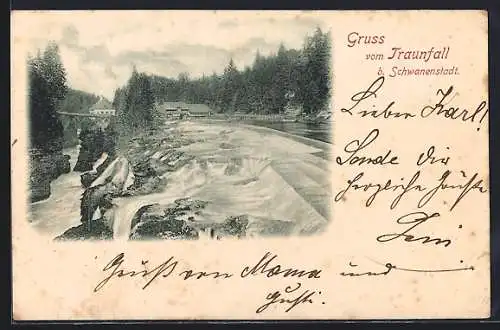 Gruss
vom Traunfall
b. Schwanenstadt.
Lieber Karl!
Sende Dir
herzliche Grüße
Dein
Gruß von Mama und
Gusti.